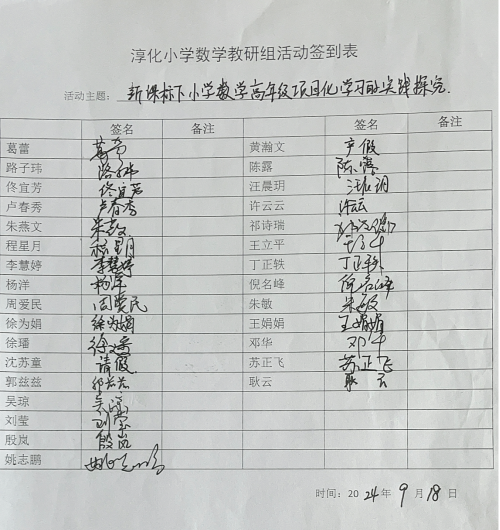 淳化小学数学教研组活动签到表
活动主题: 新课标下小学数学高年级项目化学习的实践探究
签名 备注 签名 备注
葛蕾 葛蕾 黄瀚文 产假
路子玮 路子玮 陈露 陈露
佟宜芳 佟宜芳 汪晨玥 汪晨玥
卢春秀 卢春秀 许云云 许云
朱燕文 朱燕文 祁诗瑞
程星月 程星月 王立平
李慧婷 李慧婷 丁正轶 丁正轶
杨洋 杨洋 倪名峰 倪名峰
周爱民 周爱民 朱敏 朱敏
徐为娟 徐为娟 王娟娟 王娟娟
徐璠 徐璠 邓华 邓华
沈苏童 请假 苏正飞 苏正飞
郭兹兹 郭兹兹 耿云 耿云
吴琼 吴琼
刘莹 刘莹
殷岚 殷岚
姚志鹏 姚志鹏
时间: 2024年 9月 18日